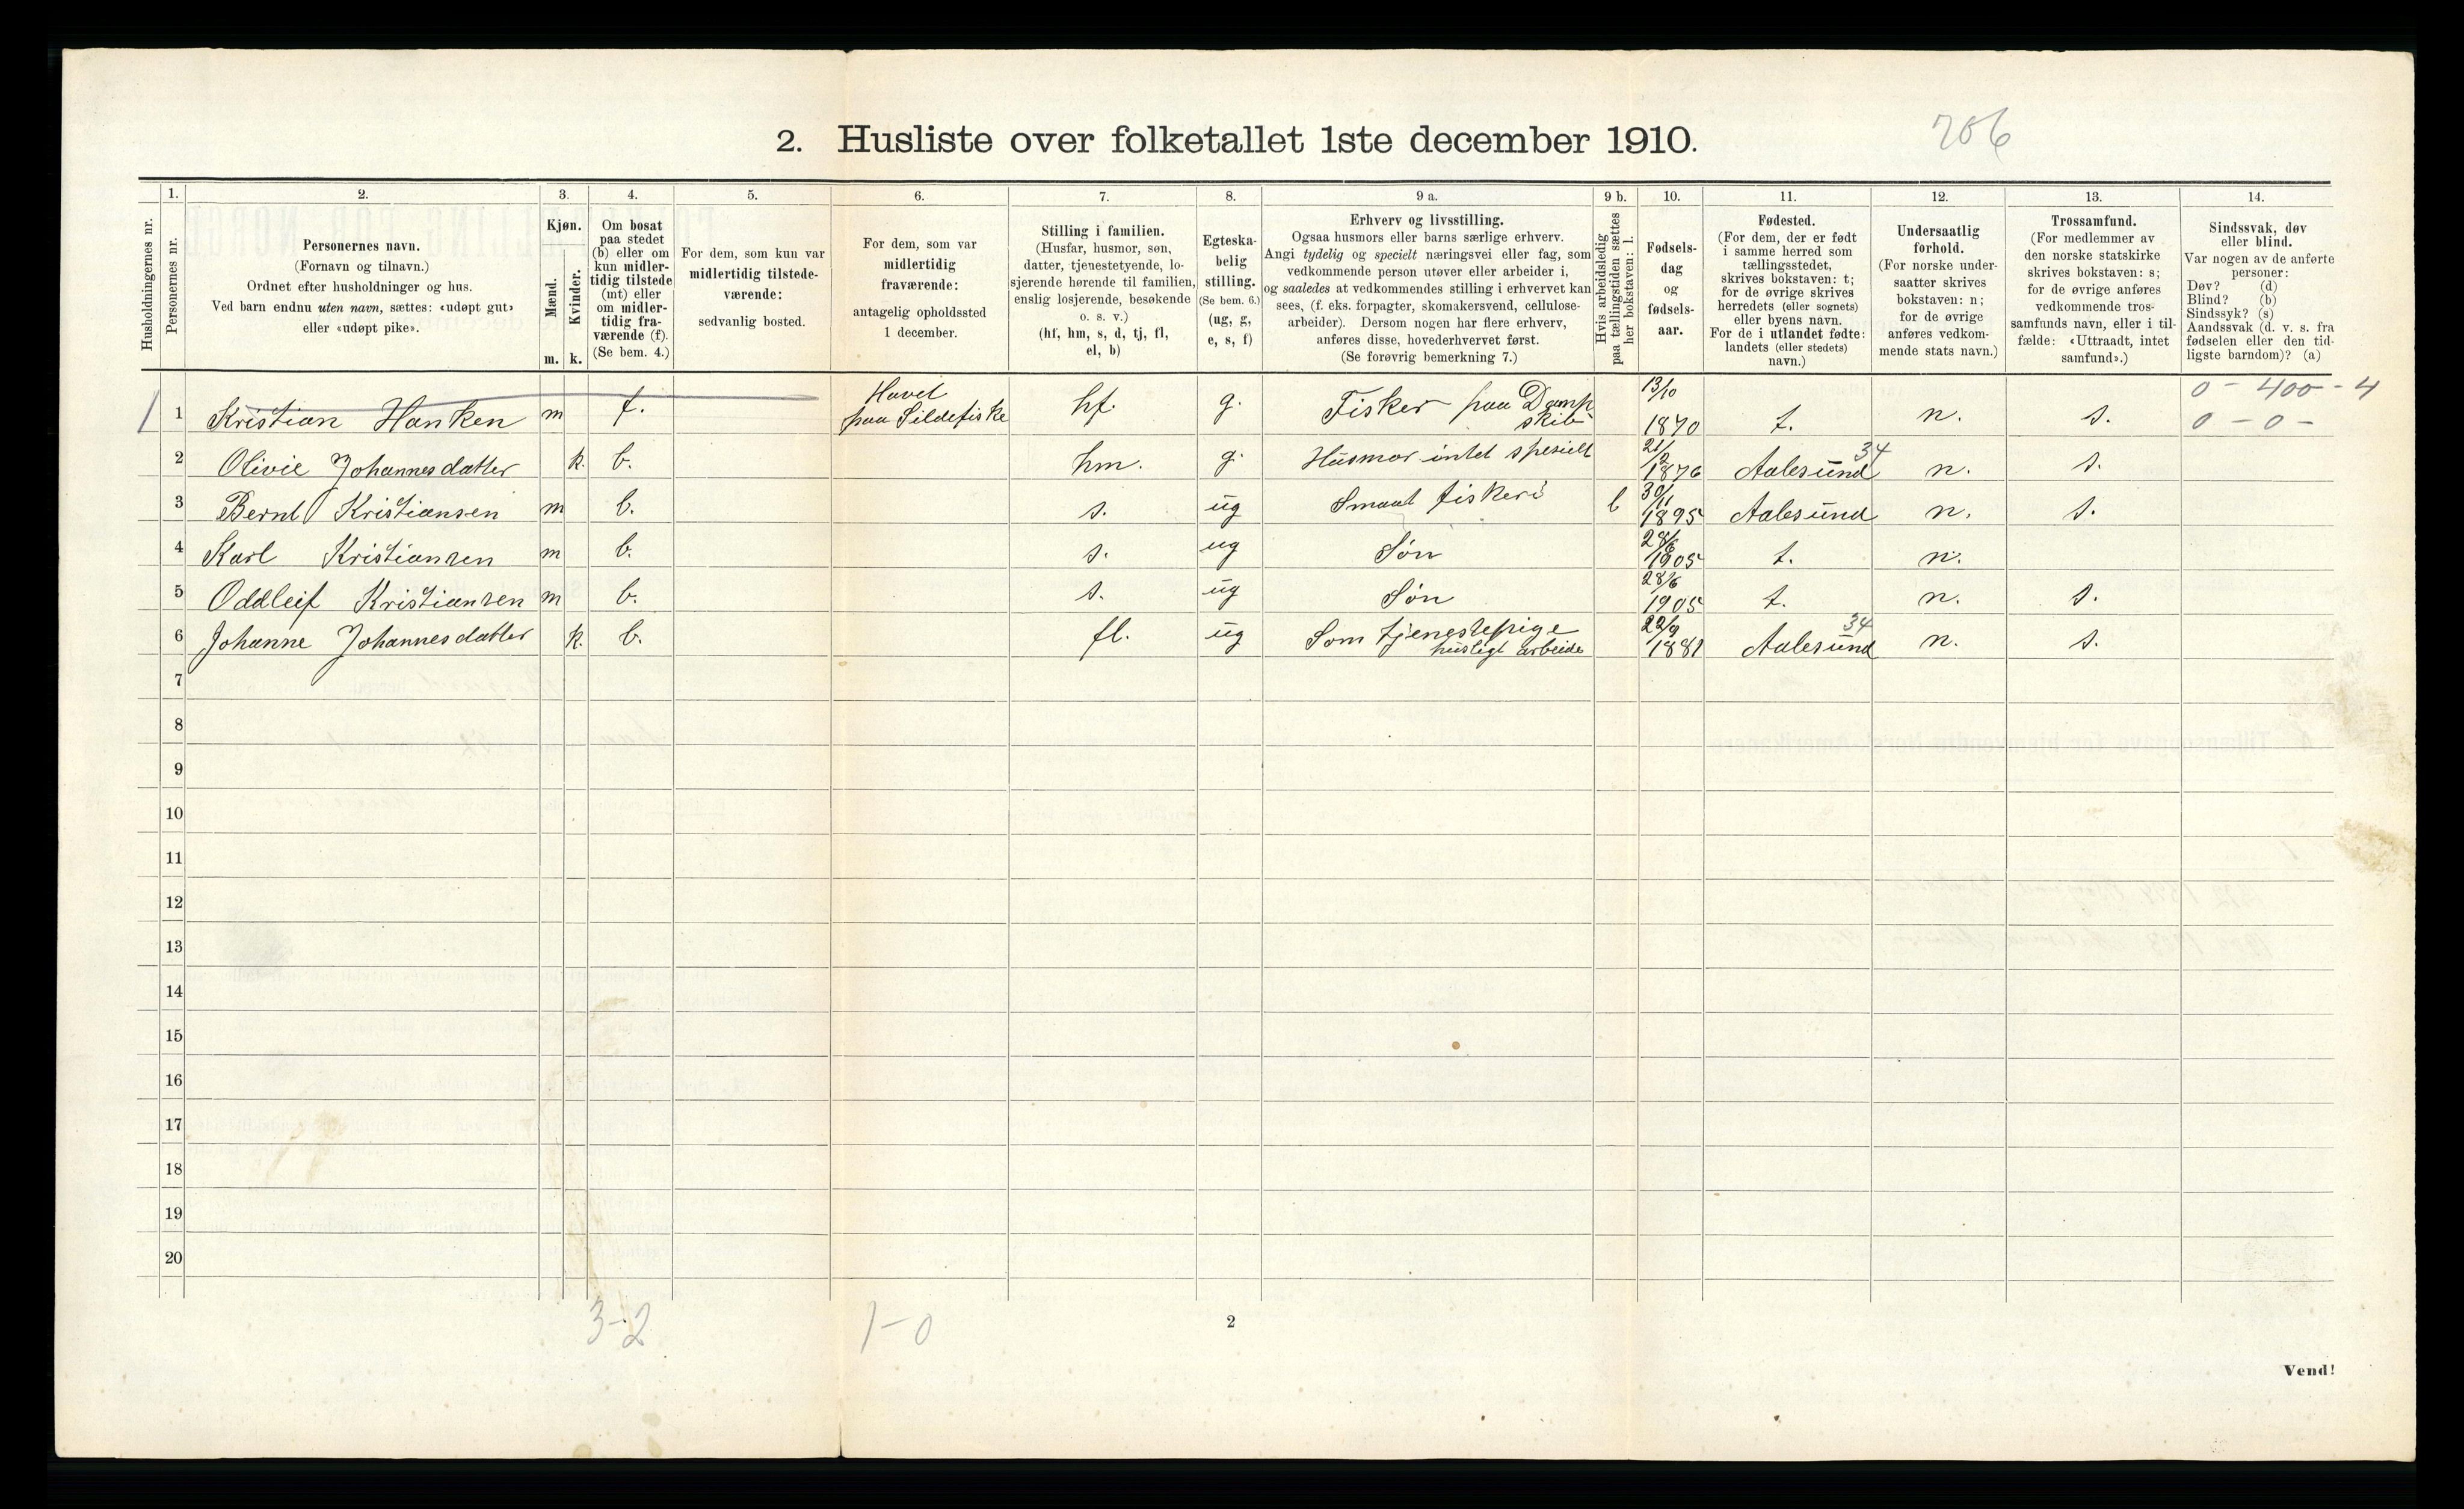 2. Husliste over folketallet 1ste december 1910.
206
Husholdningernes nr.
1.
Personernes nr.
2.
Personernes navn.
(Fornavn og tilnavn.)
Ordnet efter husholdninger og hus.
Ved barn endnu uten navn, sættes: «udøpt gut»
eller «udøpt pike».
3.
Kjøn.
Mænd.
Kvinder.
m. k.
4.
Om bosat
paa stedet
(b) eller om
kun midler-
tidig tilstede
(mt) eller
om midler-
tidig fra-
værende (f).
(Se bem. 4.)
5.
For dem, som kun var
midlertidig tilstede-
værende:
sedvanlig bosted.
6.
For dem, som var
midlertidig
fraværende:
antagelig opholdssted
1 december.
7.
Stilling i familien.
(Husfar, husmor, søn,
datter, tjenestetyende, lo-
sjerende hørende til familien,
enslig losjerende, besøkende
o. s. v.)
(hf, hm, s, d, tj, fl,
el, b)
8.
Egteska-
belig
stilling.
(Se bem. 6.)
(ug, g,
e, s, f)
9 a.
Erhverv og livsstilling.
Ogsaa husmors eller barns særlige erhverv.
Angi tydelig og specielt næringsvei eller fag, som
vedkommende person utøver eller arbeider i,
og saaledes at vedkommendes stilling i erhvervet kan
sees, (f. eks. forpagter, skomakersvend, cellulose-
arbeider). Dersom nogen har flere erhverv,
anføres disse, hovederhvervet først.
(Se forøvrig bemerkning 7.)
9 b.
Hvis arbeidsledig
paa tællingstiden sættes
her bokstaven: l.
10.
Fødsels-
dag
og
fødsels-
aar.
11.
Fødested.
(For dem, der er født
i samme herred som
tællingsstedet,
skrives bokstaven: t;
for de øvrige skrives
herredets (eller sognets)
eller byens navn.
For de i utlandet fødte:
landets (eller stedets)
navn.)
12.
Undersaatlig
forhold.
(For norske under-
saatter skrives
bokstaven: n;
for de øvrige
anføres vedkom-
mende stats navn.)
13.
Trossamfund.
(For medlemmer av
den norske statskirke
skrives bokstaven: s;
for de øvrige anføres
vedkommende tros-
samfunds navn, eller i til-
fælde: «Uttraadt, intet
samfund».)
14.
Sindssvak, døv
eller blind.
Var nogen av de anførte
personer:
Døv? (d)
Blind? (b)
Sindssyk? (s)
Aandssvak (d. v. s. fra
fødselen eller den tid-
ligste barndom)? (a)
1 1 Kristian Hanken m f. Havet paa Sildefiske hf. g. Fisker paa Dampskib 13/10 1870 t. n. s. 0 - 400 - 4
0 - 0 -
2 Olivie Johannesdatter k. b. hm. g. Husmor intet spesielt 21/2 1876 Aalesund 34 n. s.
3 Bernt Kristiansen m b. s. ug Smaat fiskeri l 30/11 1895 Aalesund n. s.
4 Karl Kristiansen m b. s. ug Søn 28/6 1905 t. n.
5 Oddleif Kristiansen m b. s. ug Søn 28/6 1905 t. n. s.
6 Johanne Johannesdatter k. b. fl. ug Som tjenestepige husligt arbeide 22/9 1881 Aalesund 34 n. s.
7
8
9
10
11
12
13
14
15
16
17
18
19
20
3-2
1-0
2
Vend!